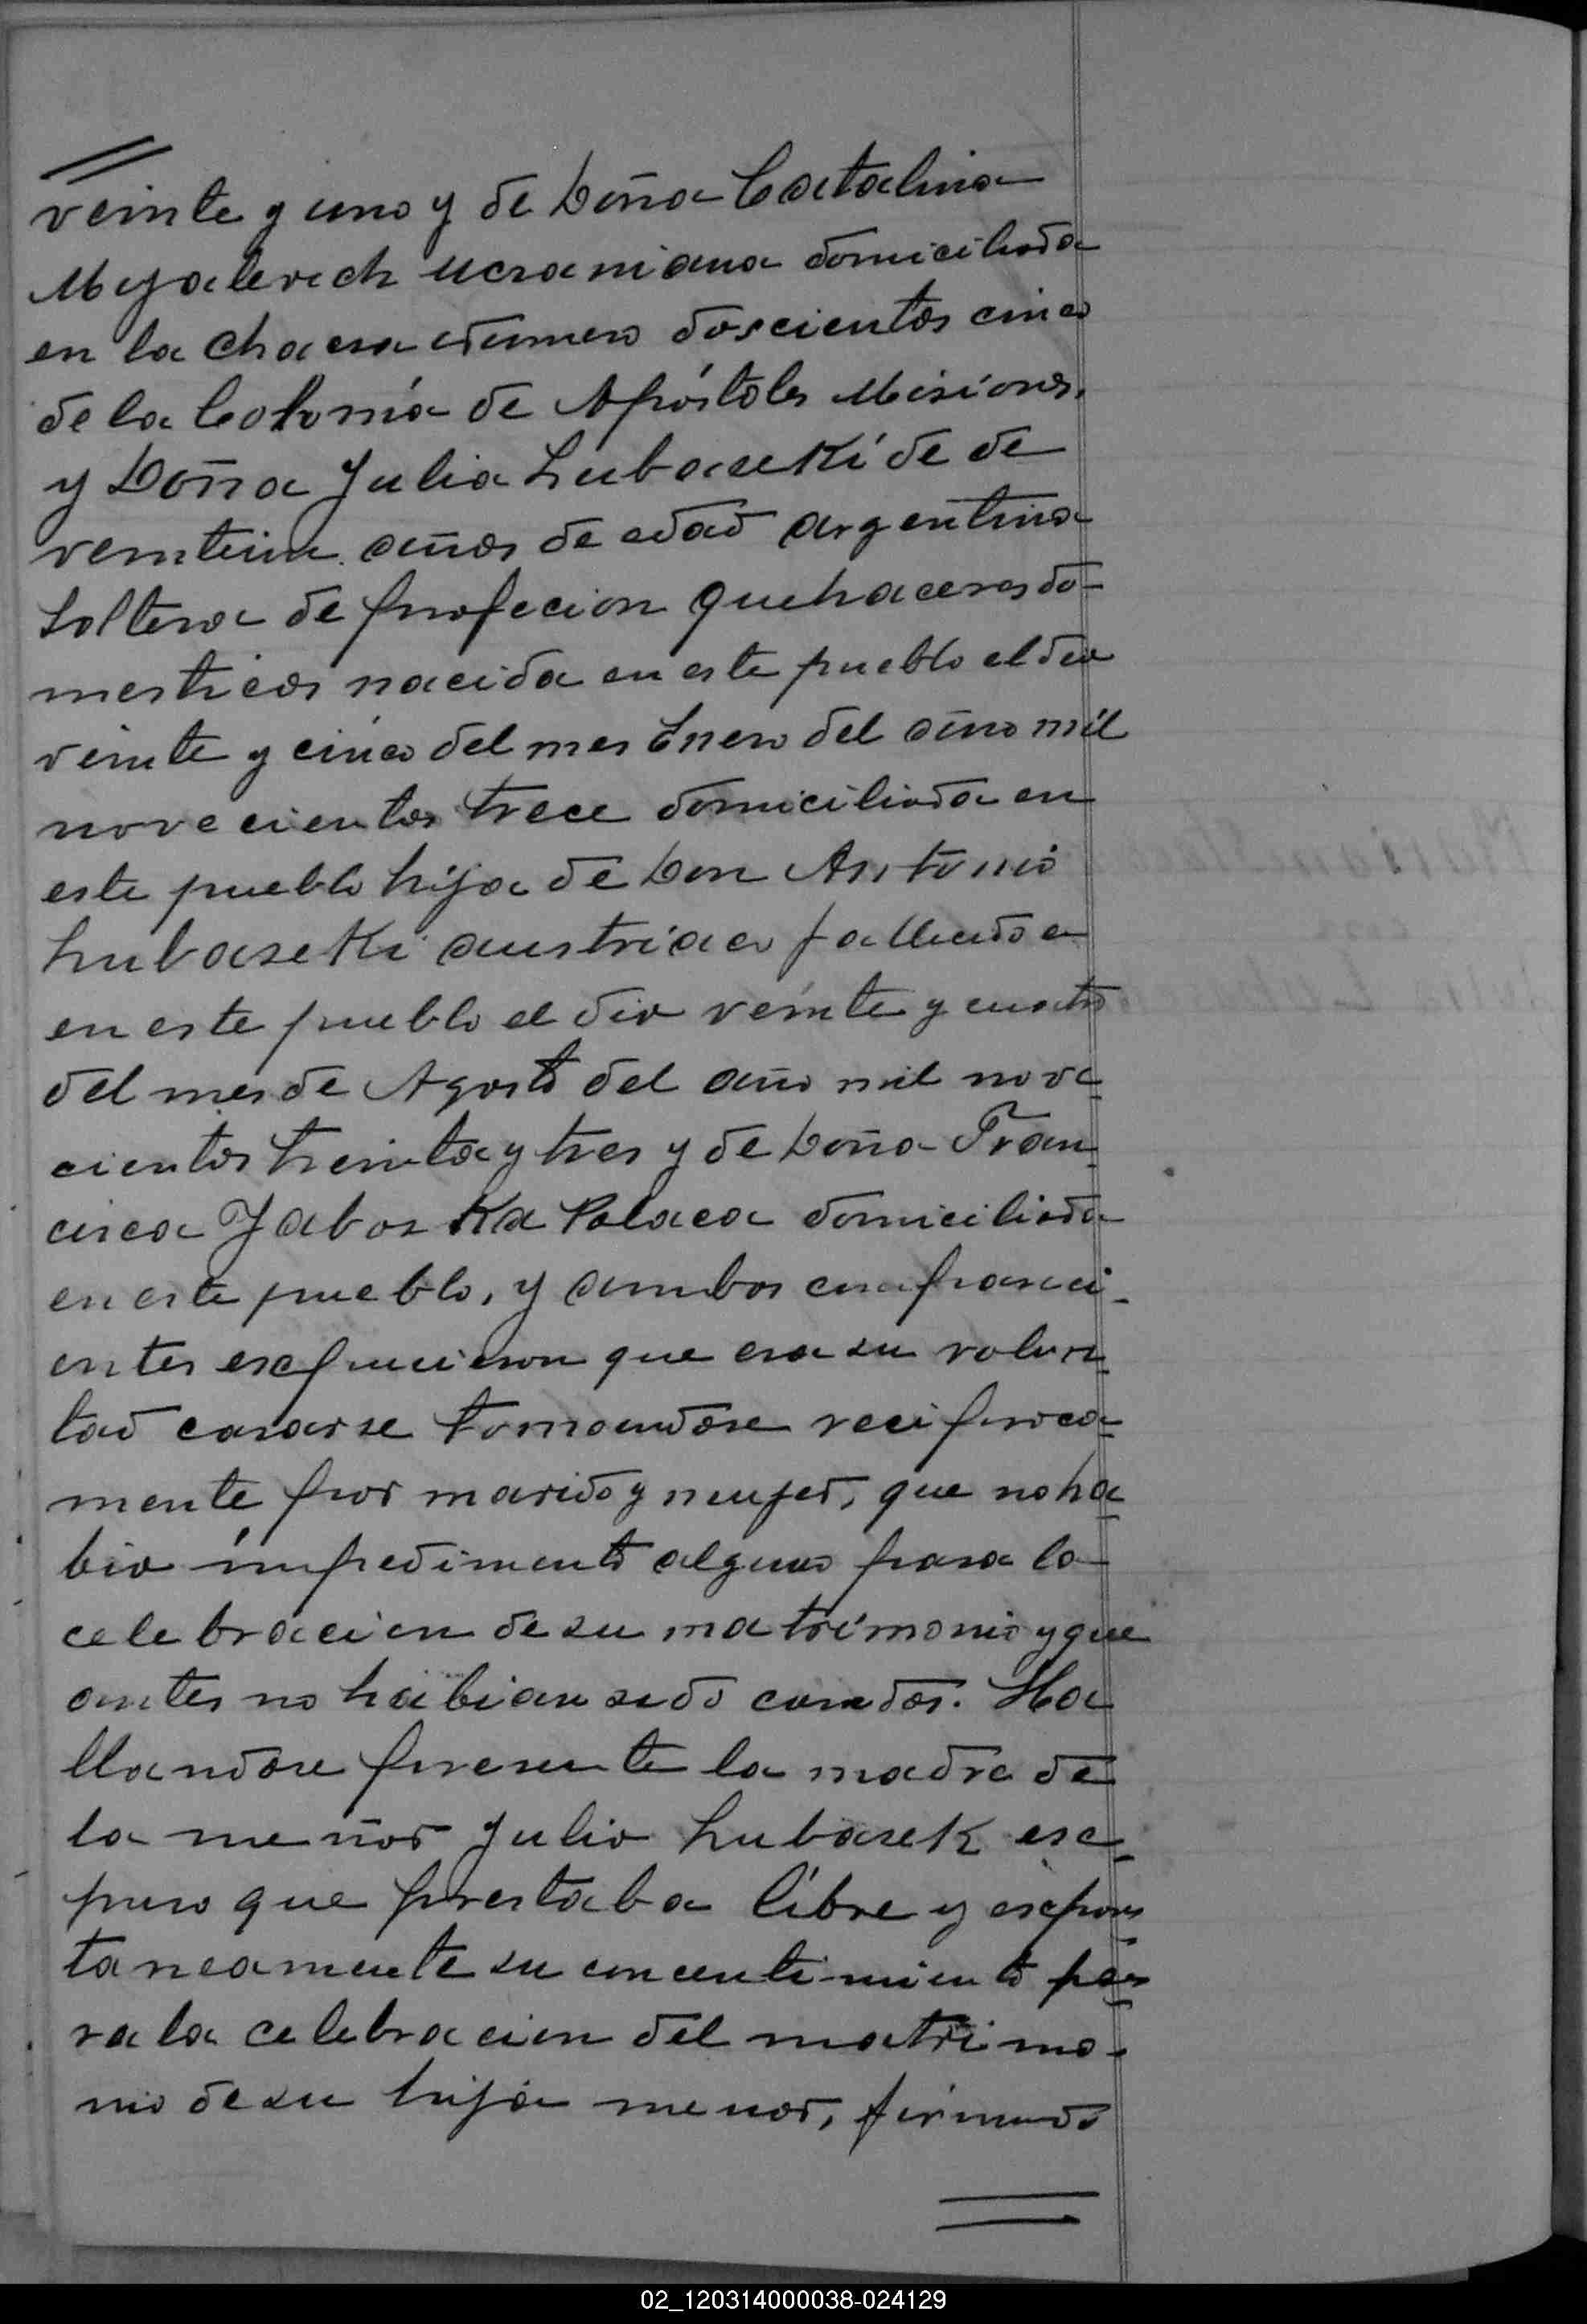 veinte y uno y de Doña Catalina
Myalevich Ucraniana domiciliada
en la chacra número doscientos cinco
de la Colonia de Apóstoles Misiones,
y Doña Julia Lubaseki de de
veintiun años de edad argentina
Soltera de profecion quehaceres do-
mesticos nacida en este pueblo el dia
veinte y cinco del mes Enero del año mil
novecientos trece domiciliada en
este pueblo hija de Don Antonio
Lubaseki austríaco fallecido en
en este pueblo el dia veinte y cuatro
del mes de Agosto del año mil nove
cientos treinta y tres y de Doña Fran
cisca Jaboska Polaca domiciliada
en este pueblo, y ambos compareci-
entes expucieron que era su volun
tad casarse tomandose reciproca
mente por marido y mujer, que no ha
bia impedimento alguno para la
celebracion de su matrimonio y que
antes no habian sido casados. Ha
llandose presente la madre de
la menor Julia Lubasek ex
puso que prestaba libre y expon
taneamente su concentimiento pa
ra la celebracion del matrimo-
nio de su hija menor, firmando
02_120314000038-024129